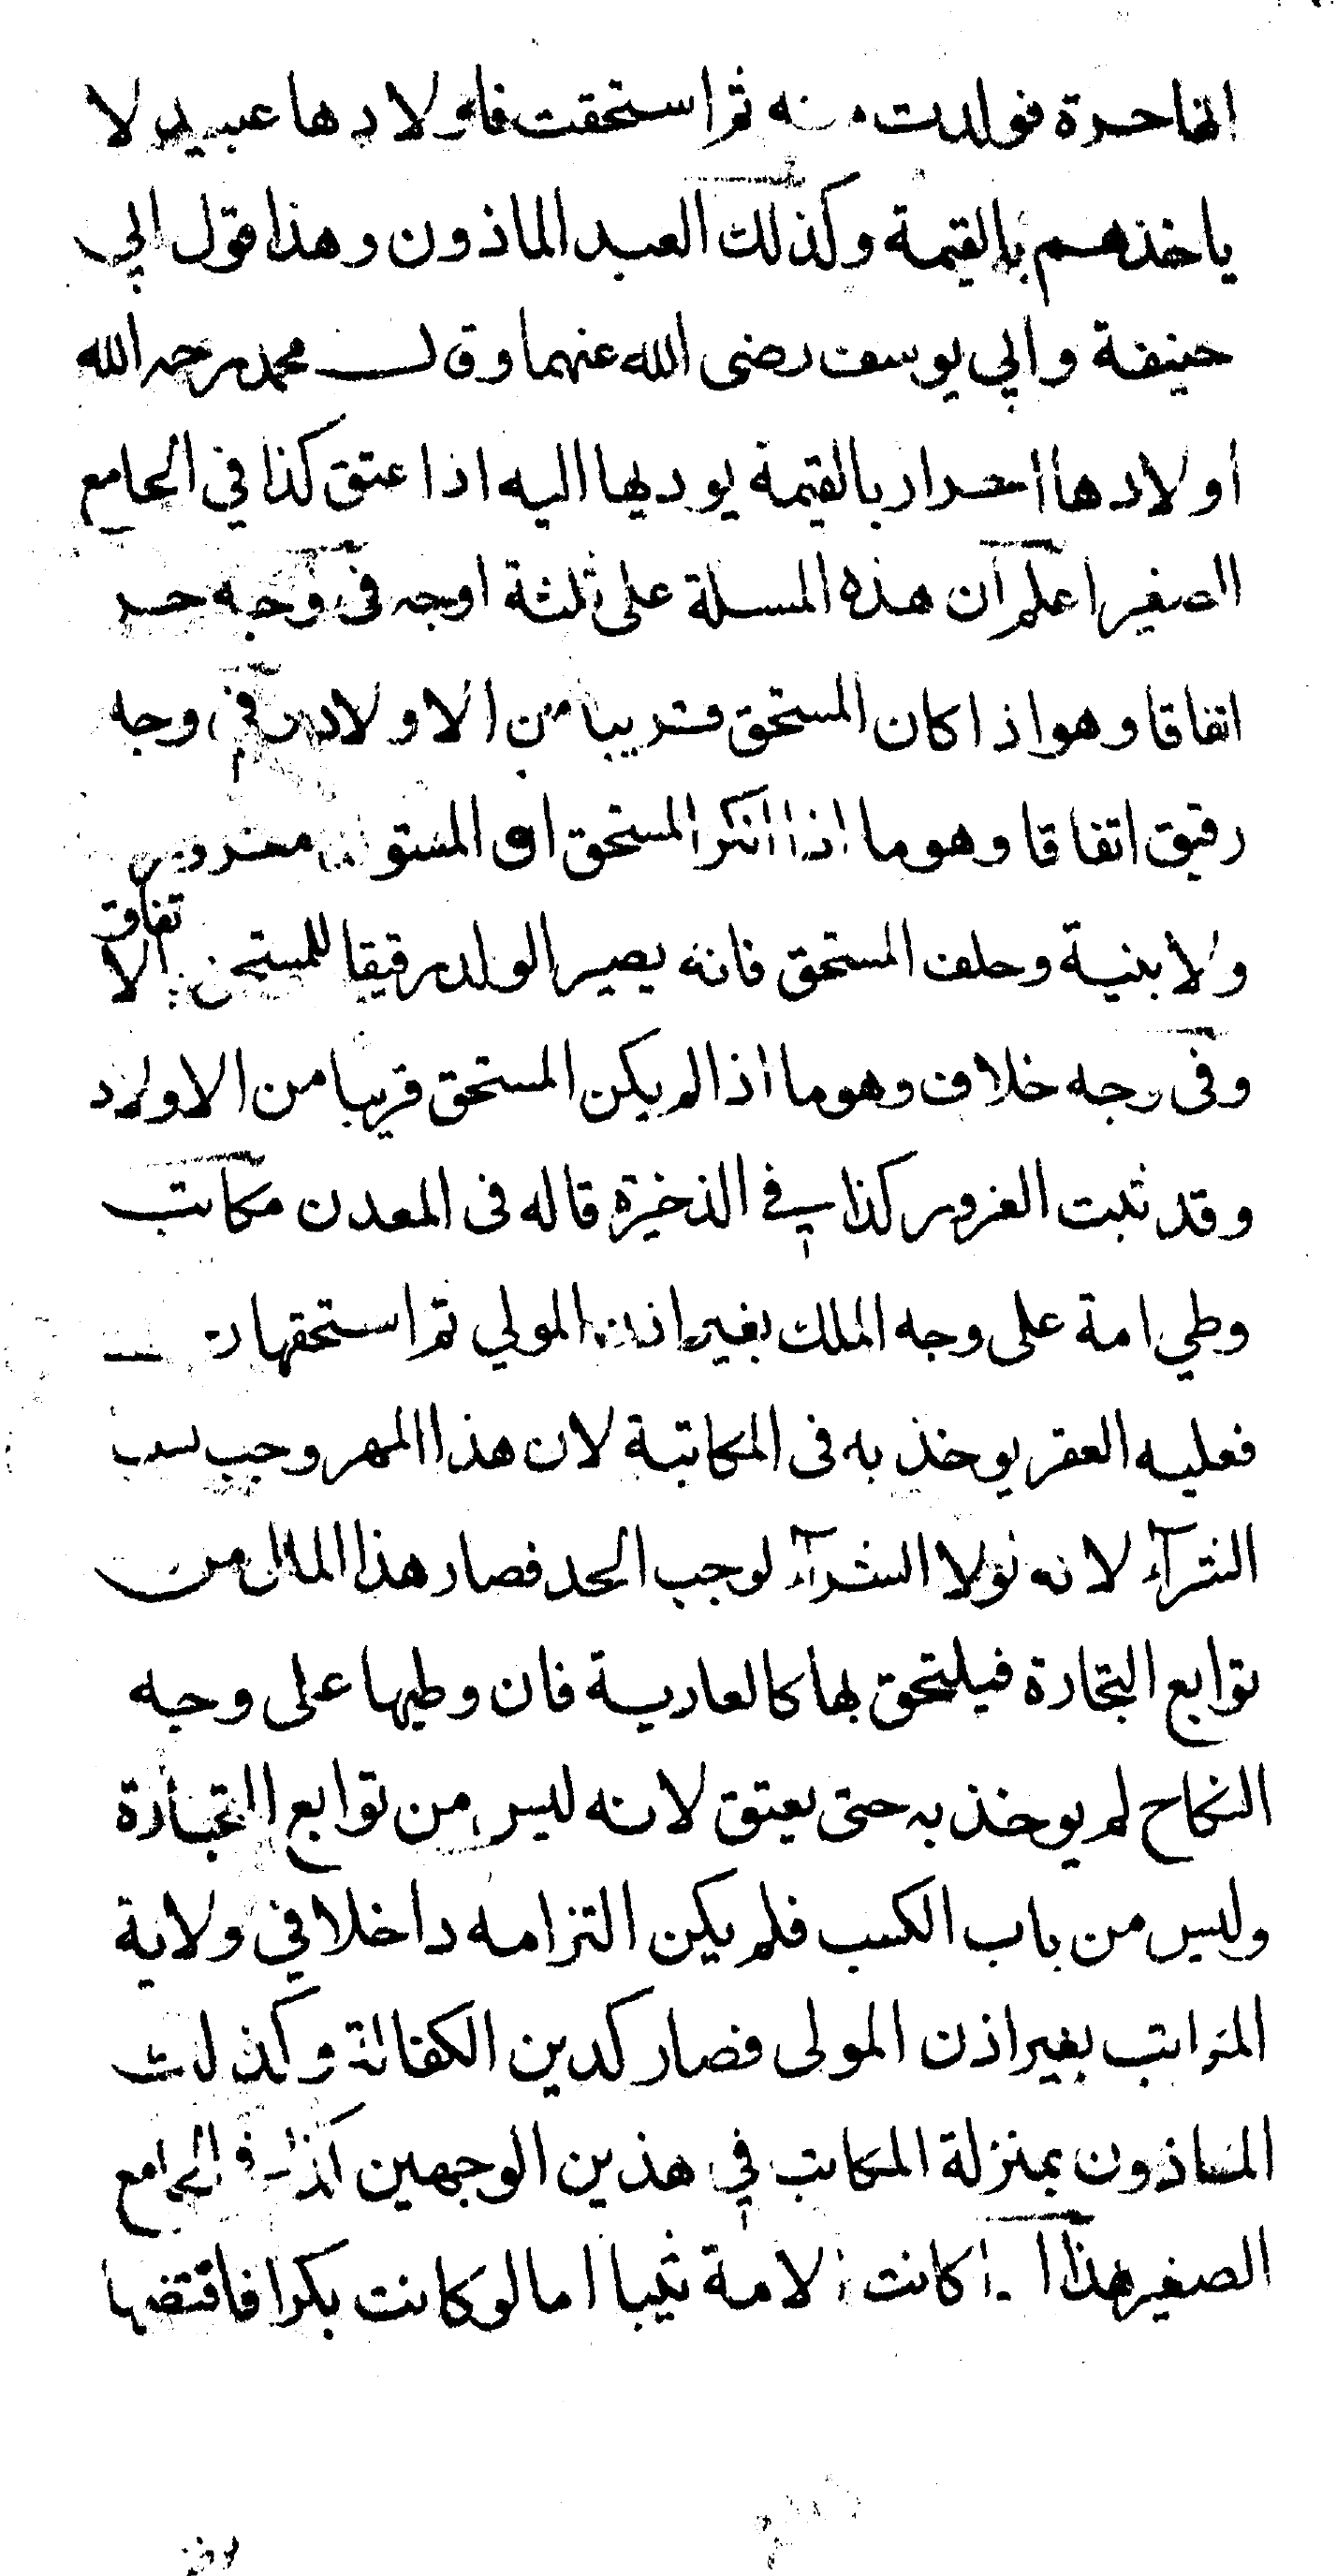 انها حرة فولدت منه ثم استحقت فاولادها عبيد لا
ياخذهم بالقيمة وكذلك العبد الماذون وهذا قول ابي
حنيفة وابي يوسف رضى الله عنهما وقال محمد رحمه الله
اولادها احرار بالقيمة يوديها اليه اذا عتق كذا في الجامع
الصغير اعلم ان هذه المسلة على ثلثة اوجه فى وجه حر
اتفاقا وهو اذا كان المستحق قريبا من الاولاد وفي وجه
رقيق اتفاقا وهو ما اذا انكر المستحق ان المستولد مغرور
ولا بنية وحلف المستحق فانه يصير الولد رقيقا للمستحق بالاتفاق
وفى وجه خلاف وهو ما اذا لم يكن المستحق قريبا من الاولاد
وقد ثبت الغرور كذا في الذخيرة قاله فى المعدن مكاتب
وطي امة على وجه الملك بغير اذن المولي ثم استحقها
فعليه العقر يوخذ به فى المكاتبة لان هذا المهر وجب بسبب
الشرآء لانه لولا الشرآء لوجب الحد فصار هذا المال من
توابع التجارة فيلتحق بها كالعارية فان وطيها على وجه
النكاح لم يوخذ به حتى يعتق لانه ليس من توابع التجارة
وليس من باب الكسب فلم يكن التزامه داخلا في ولاية
المكاتب بغير اذن المولى فصار كدين الكفالة وكذلك
الماذون بمنزلة المكاتب في هذين الوجهين كذا في الجامع
الصغير هذا اذا كانت الامة ثيبا اما لو كانت بكرا فاقتضها